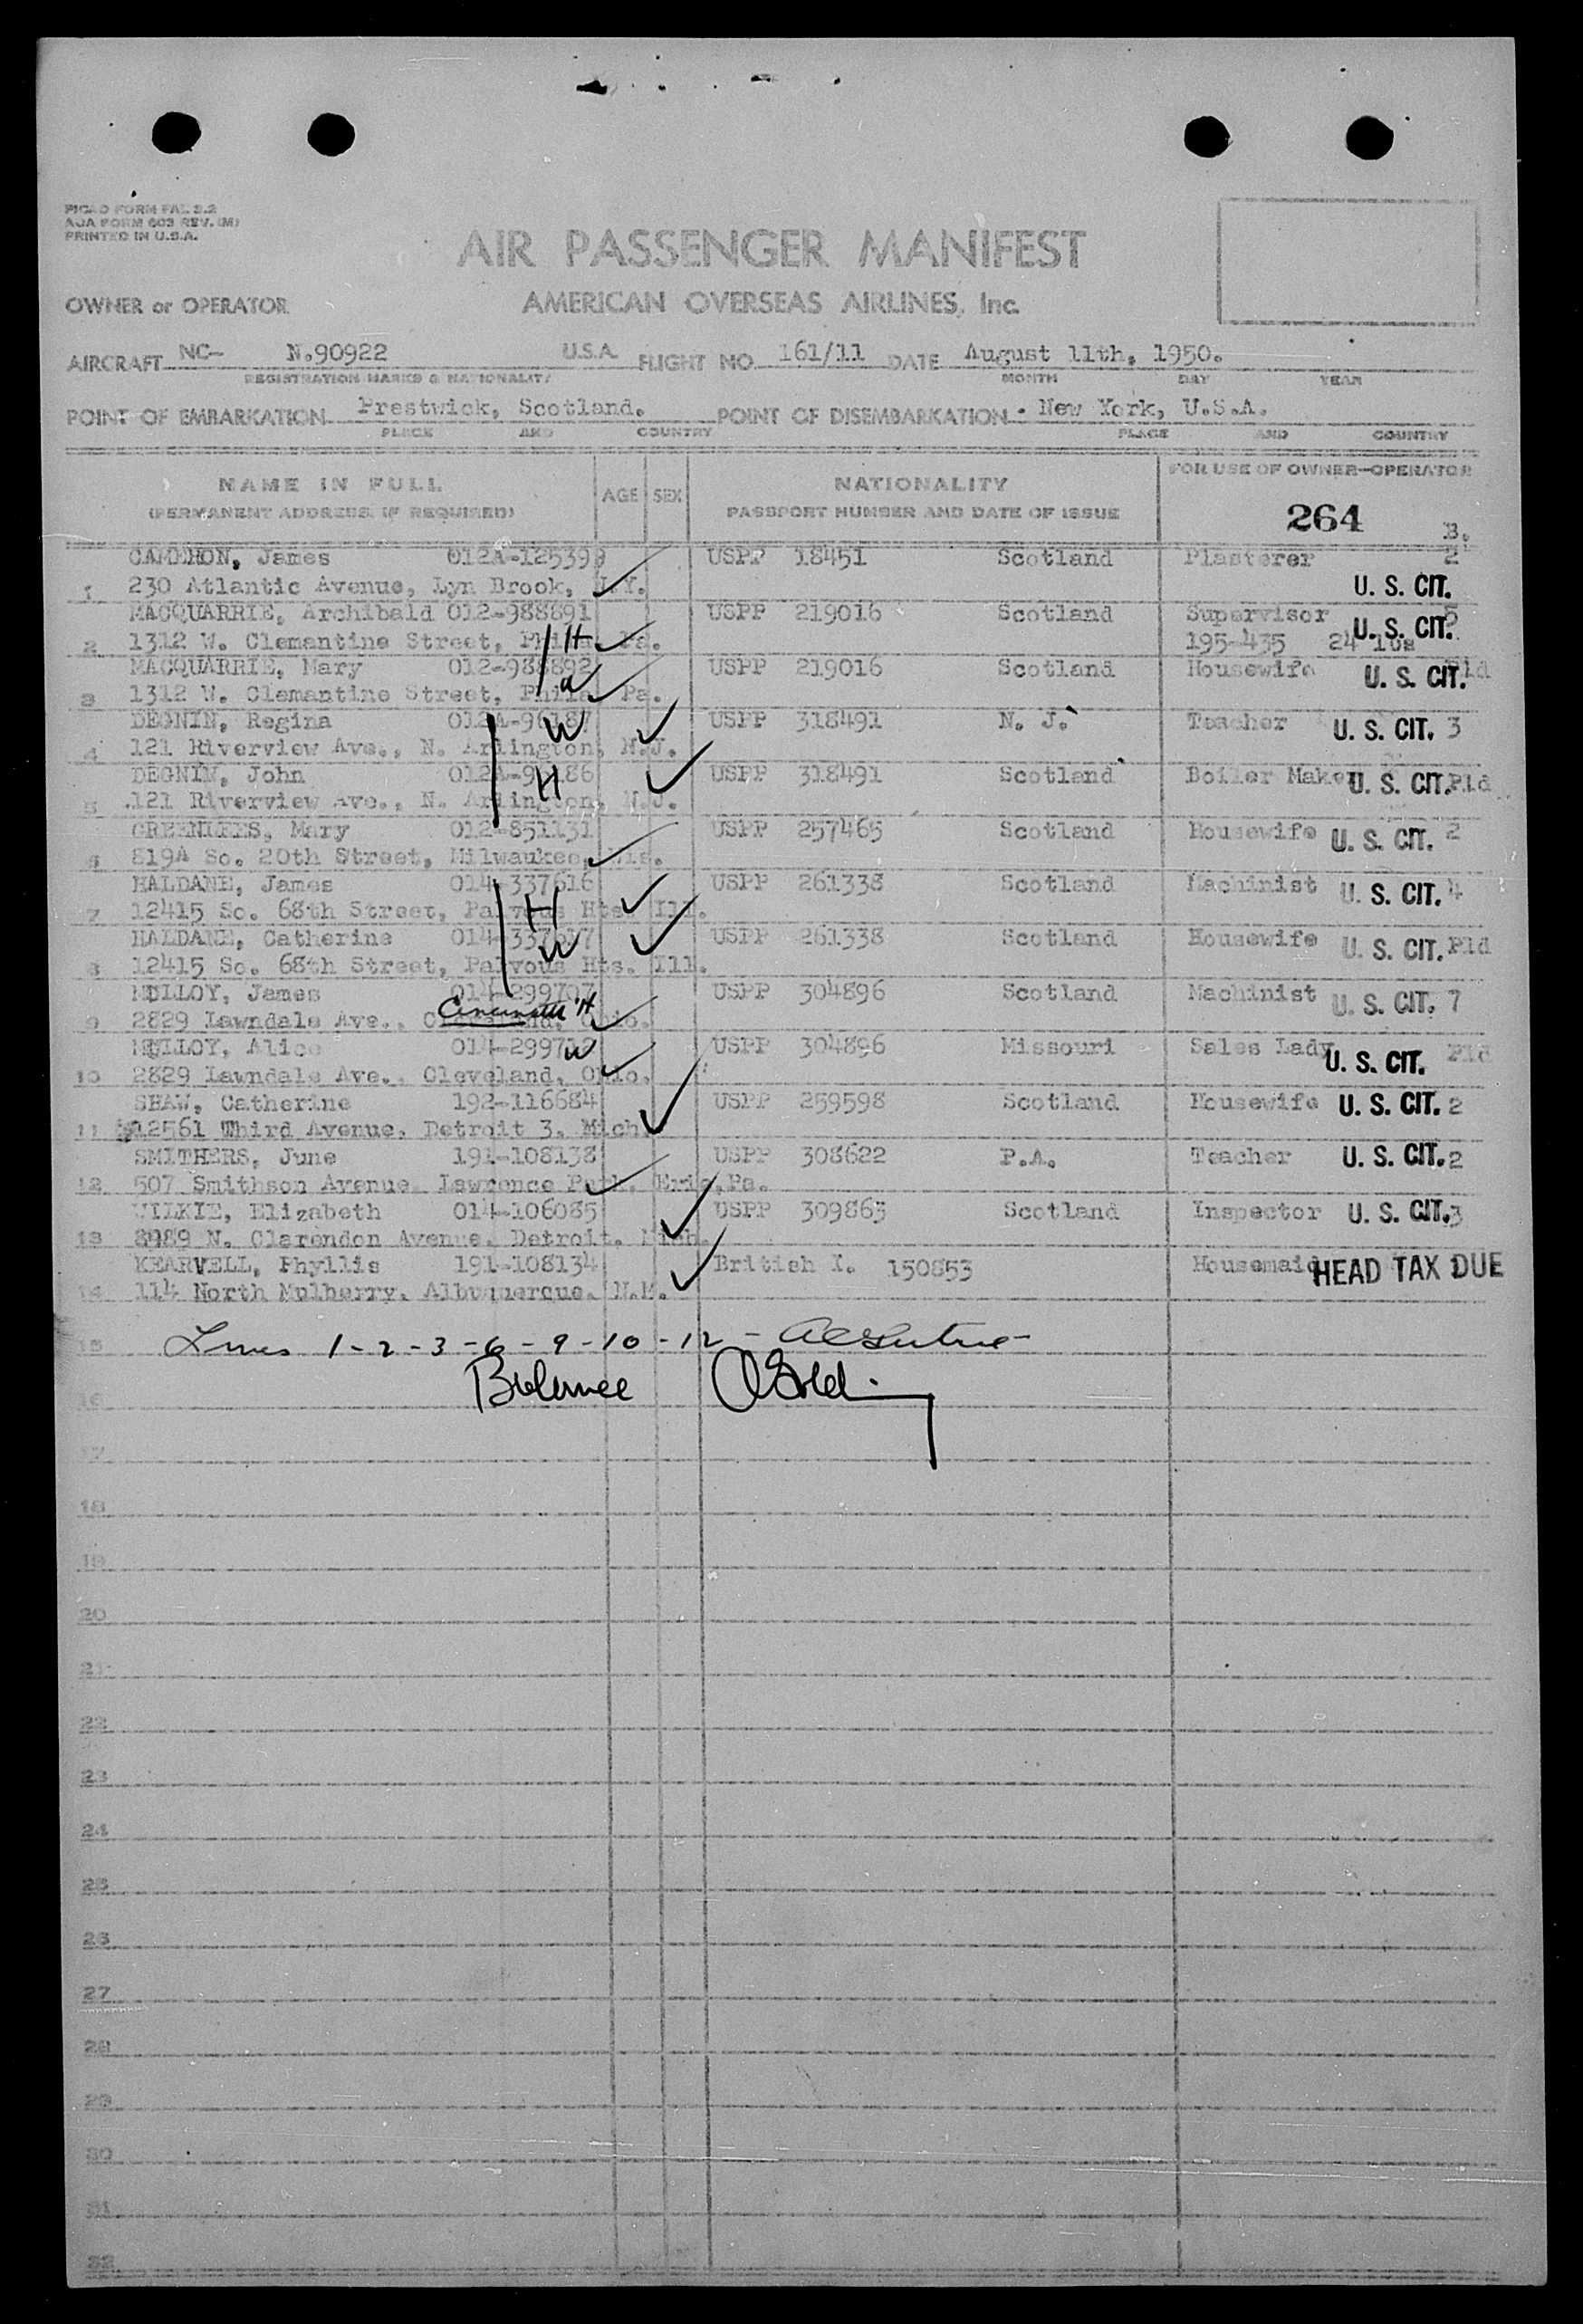 PICAO FORM FAL 2.2
AOA FORM 603 REV. (M)
PRINTED IN U.S.A.
AIR PASSENGER MANIFEST
OWNER or OPERATOR AMERICAN OVERSEAS AIRLINES, Inc.
AIRCRAFT NC- N.90922 U.S.A. FLIGHT NO. 161/11 DATE August 11th, 1950.
REGISTRATION MARKS & NATIONALITY MONTH DAY YEAR
POINT OF EMBARKATION Prestwick, Scotland. POINT OF DISEMBARKATION New York, U.S.A.
PLACE AND COUNTRY PLACE AND COUNTRY
NAME IN FULL AGE SEX NATIONALITY FOR USE OF OWNER-OPERATOR
(PERMANENT ADDRESS, IF REQUIRED) PASSPORT NUMBER AND DATE OF ISSUE 264 B.
CAMERON, James 012A-125399 USPP 18451 Scotland Plasterer 2
1 230 Atlantic Avenue, Lyn Brook, N.Y. U. S. CIT.
MACQUARRIE, Archibald 012-988891 USPP 219016 Scotland Supervisor 5
2 1312 W. Clemantine Street, Phila. Pa. H 195-435 24 lbs U. S. CIT.
MACQUARRIE, Mary 012-988892 USPP 219016 Scotland Housewife Pld
3 1312 W. Clemantine Street, Phila. Pa. U. S. CIT.
DEGNIN, Regina 012A-96187 W USPP 318491 N. J. Teacher U. S. CIT. 3
4 121 Riverview Ave., N. Arlington, N.J.
DEGNIN, John 012A-96186 H USPP 318491 Scotland Boiler Maker U. S. CIT. Pld
5 121 Riverview Ave., N. Arlington, N.J.
GREENLEES, Mary 012-851131 USPP 257465 Scotland Housewife U. S. CIT. 2
6 819A So. 20th Street, Milwaukee, Wis.
HALDANE, James 014-337616 USPP 261338 Scotland Machinist U. S. CIT. 4
7 12415 So. 68th Street, Palvous Hts. Ill. H
HALDANE, Catherine 014-337617 W USPP 261338 Scotland Housewife U. S. CIT. Pld
8 12415 So. 68th Street, Palvous Hts. Ill.
MULLOY, James 014-299707 USPP 304896 Scotland Machinist U. S. CIT. 7
9 2829 Lawndale Ave., Cleveland, Ohio. Cincinatti H
MULLOY, Alice 014-299712 W USPP 304896 Missouri Sales Lady U. S. CIT. Pld
10 2829 Lawndale Ave., Cleveland, Ohio.
SHAW, Catherine 192-116684 USPP 259598 Scotland Housewife U. S. CIT. 2
11 12561 Third Avenue, Detroit 3, Mich.
SMITHERS, June 191-108138 USPP 308622 P.A. Teacher U. S. CIT. 2
12 507 Smithson Avenue, Lawrence Park, Erie, Pa.
WILKIE, Elizabeth 014-106085 USPP 309863 Scotland Inspector U. S. CIT. 3
13 8989 N. Clarendon Avenue, Detroit, Mich.
KEARVELL, Phyllis 191-108134 British K. 150853 Housemaid HEAD TAX DUE
14 114 North Mulberry, Albuquerque, N.M.
15 Lines 1-2-3-6-9-10-12-
16 Balance
17
18
19
20
21
22
23
24
25
26
27
28
29
30
31
32